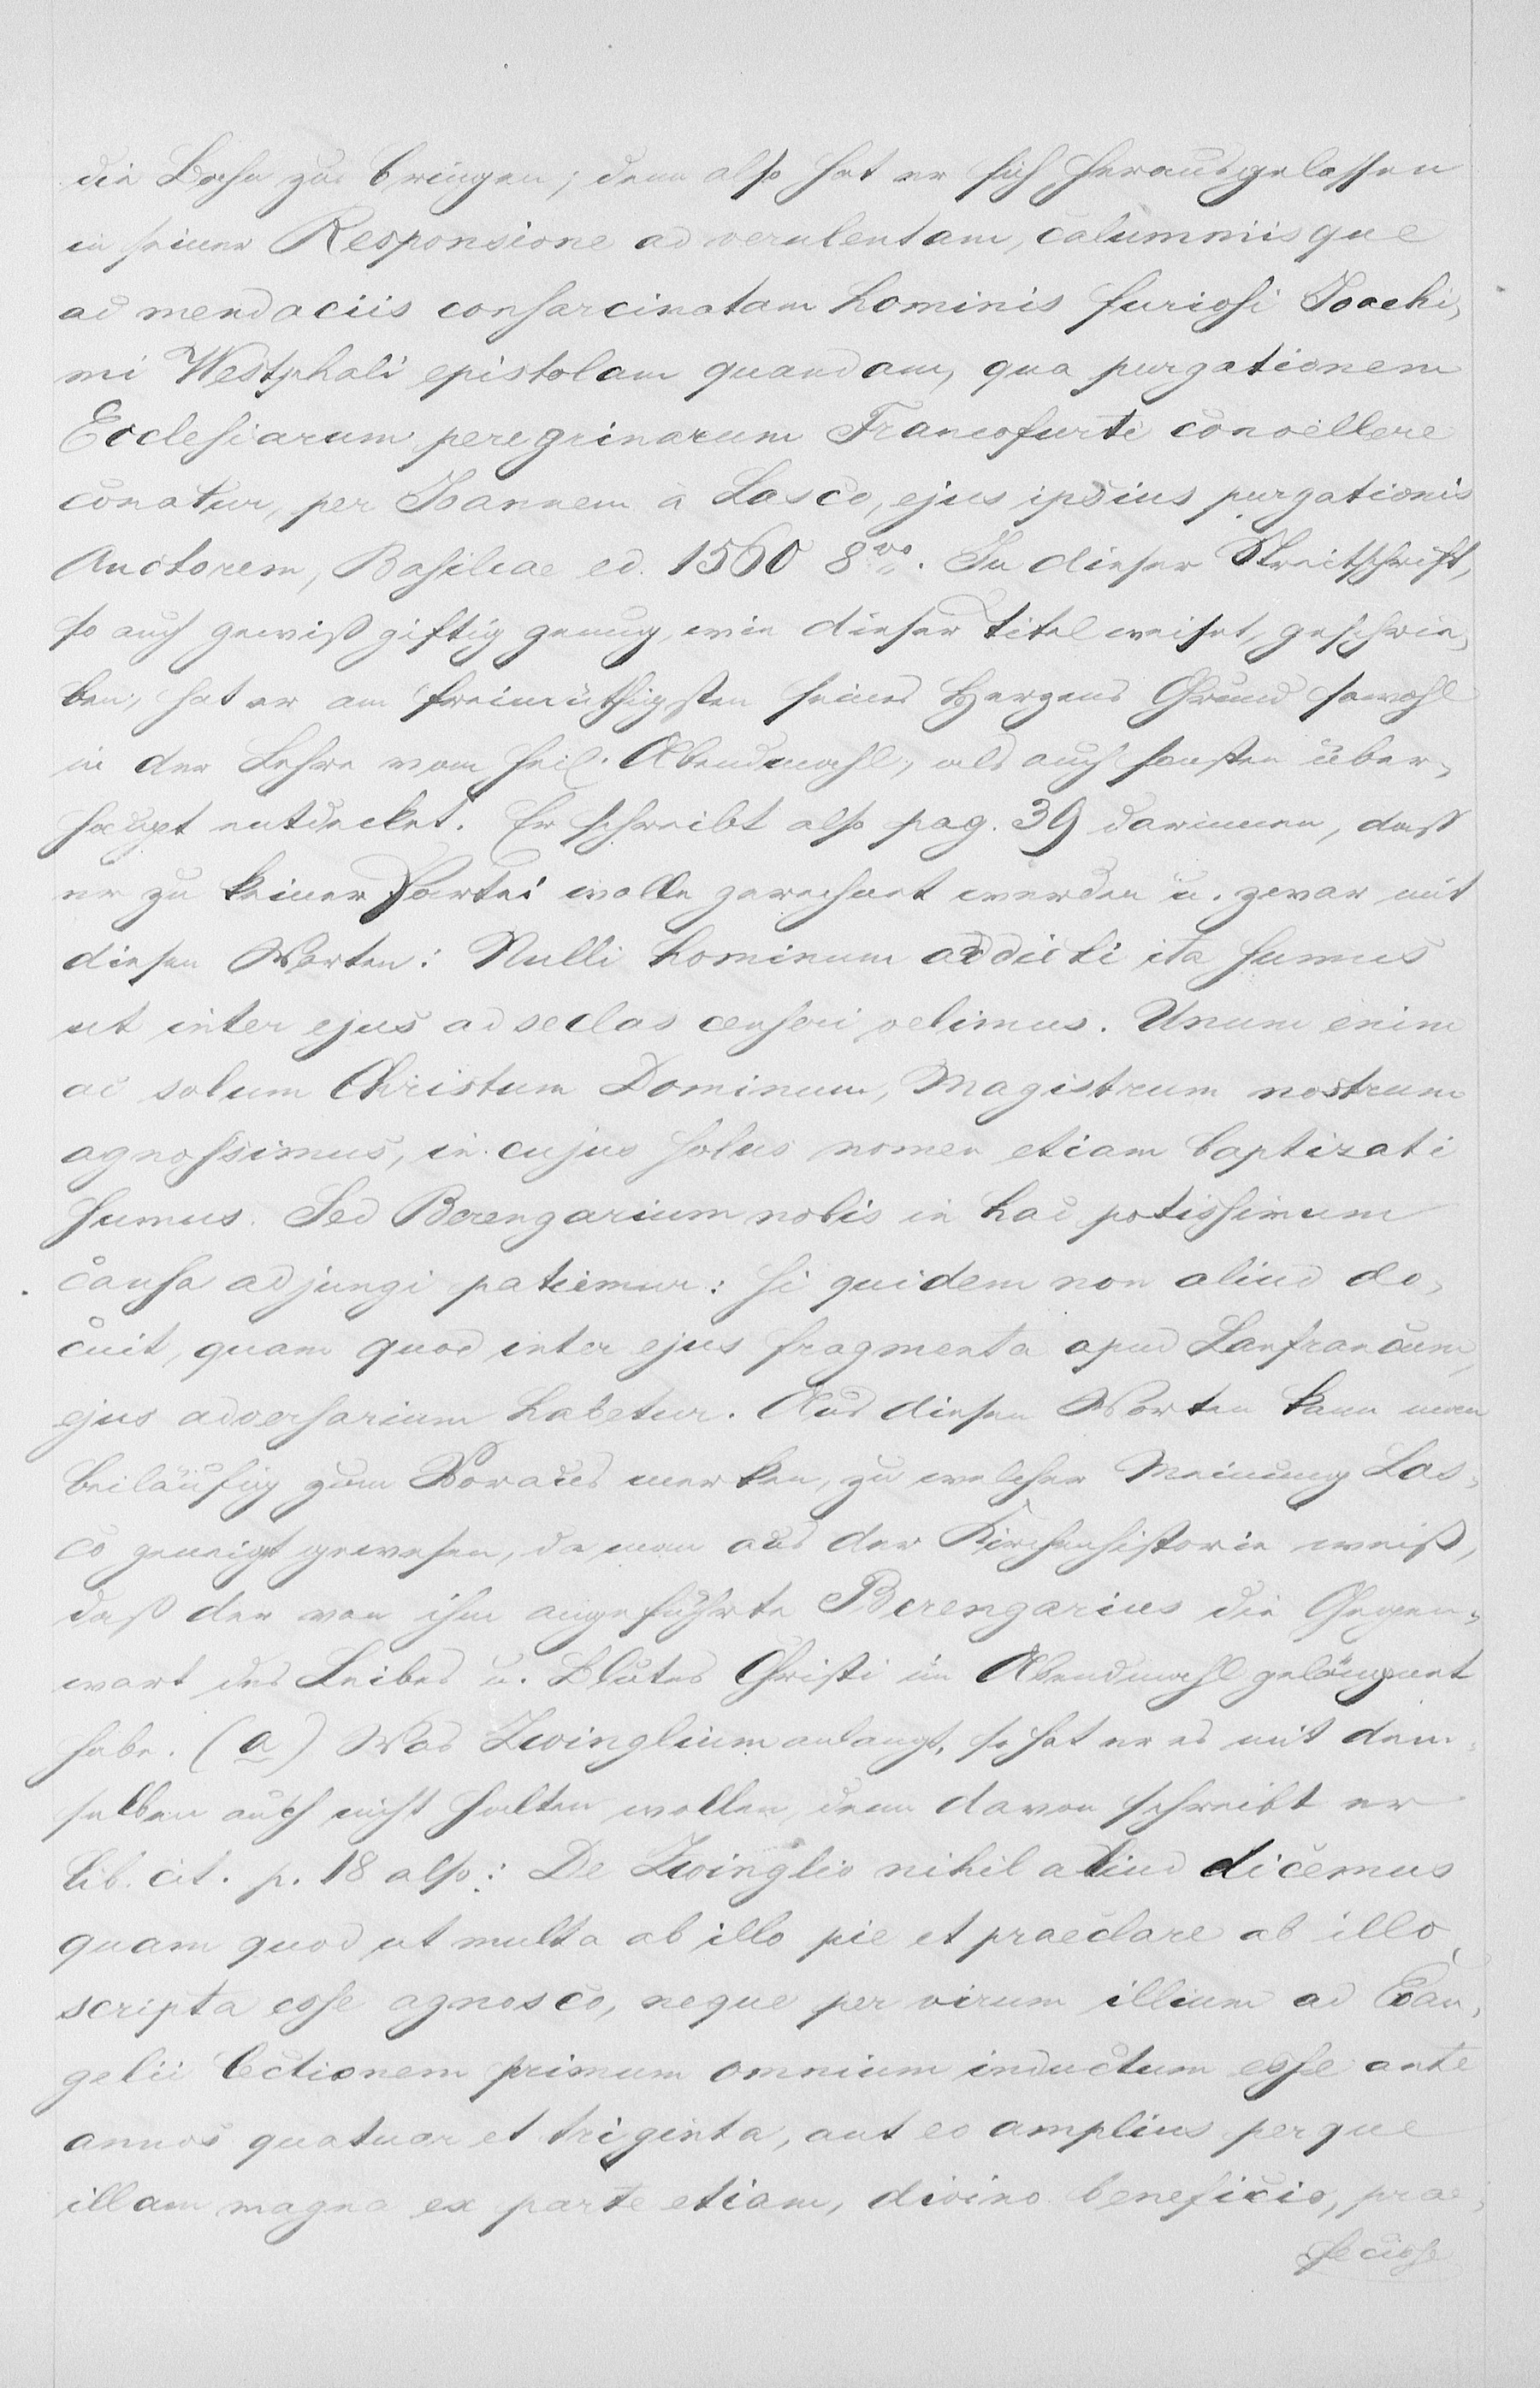 die Bahn zu bringen; denn also hat er sich herausgelassen
in seiner Responsione ad verulentam, calumniisque
ad mendaciis consarcinatam hominis furiosi Joachi,
mi Westphali epistolam quandam, qua purgationem
Ecclesiarum peregrinarum Francofurti convellere
conatur, per Joannem à Lasco, ejus ipsius purgationis
Auctorem, Basileae ed. 1560 8vo. In dieser Streitschrift,
so auch gewiß giftig genug, wie dieser Titel weiset, geschrie,
ben, hat er am freimüthigsten seines Herzens Grund sowohl
in der Lehre vom heil. Abendmahl, als auch sonsten über,
haupt entdecket. Er schreibt also pag. 39 darinnen, dass
er zu keiner Partei wolle gerechnet werden u. zwar mit
diesen Worten: Nulli hominum addicti ita sumus
ut inter ejus ad sectas censeri velimus. Unum enim
ac solum Christum Dominum, Magistrum nostrum
agnossimus, in cujus solus nomen etiam baptizati
sumus. Sed Berengarium nobis in hac potissimum
causa adjungi patiemur: si quidem non aliud do,
cuit, quam quod inter ejus fragmenta apud Lanfrancum,
ejus adversarium habetur. Aus diesen Worten kann man
beiläufig zum Voraus merken, zu welcher Meinung Las,
co geneigt gewesen, da man aus der Kirchenhistorie weiß,
daß der von ihm angeführte Berengarius die Gegen,
wart des Leibes u. Blutes Christi im Abendmahl geläugnet
habe. (a) Was Zwinglium anlangt, so hat er es mit dem,
selben auch nicht halten wollen, denn davon schreibt er
lib. cit. p. 18 also: De Zwinglio nihil aliud dicemus
quam quod ut multa ab illo pie et praeclare ab illo
scripta esse agnosco, neque per virum illium ad Evan,
gelii lectionem primum omnium inductum esse ante
annos quatuor et triginta, aut eo amplius perque
illam magna ex parte etiam, divino beneficio, prae,